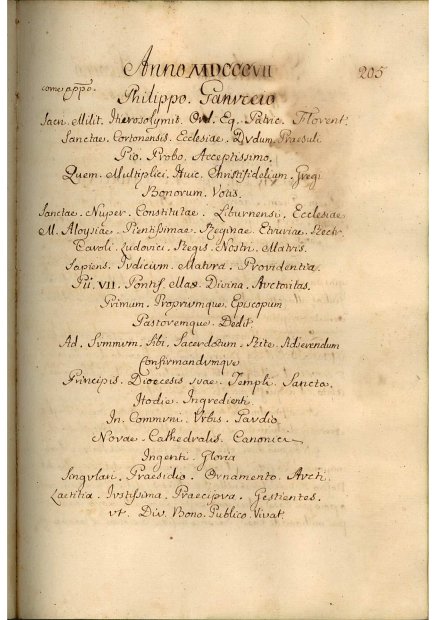 Anno MDCCCVII
205
come appo.
Philippo. Ganuccio
Sacri. Milit. Hierosolymit. Ord. Eq. Patric. Florent.
Sanctae. Cortonensis. Ecclesiae. Dudum. Praesuli
Pio. Probo. Acceptissimo.
Quem. Multiplici. Huic. Christifidelium. Gregi
Bonorum. Votis.
Sanctae. Nuper. Constitutae. Liburnensi. Ecclesiae
M. Aloysiae. Pientissimae. Reginae. Etruriae. Rectr.
Caroli. Ludovici. Regis. Nostri. Matris.
Sapiens. Iudicium. Matura. Providentia.
Pii. VII. Pontif. Max. Divina. Auctoritas.
Primum. Propriumque. Episcopum
Pastoremque. Dedit.
Ad. Summum. Sibi. Sacerdotum. Rite. Adserendum
Confirmandumque
Principis. Dioecesis. suae. Templi. Sancta.
Hodie. Ingredienti.
In. Communi. Urbis. Gaudio
Novae. Cathedralis. Canonici
Ingenti. Gloria
Singulari. Praesidio. Ornamento. Aucti.
Laetitia. Iustissima. Praecipua. Gestientes.
ut. Diu. Bono. Publico. Vivat